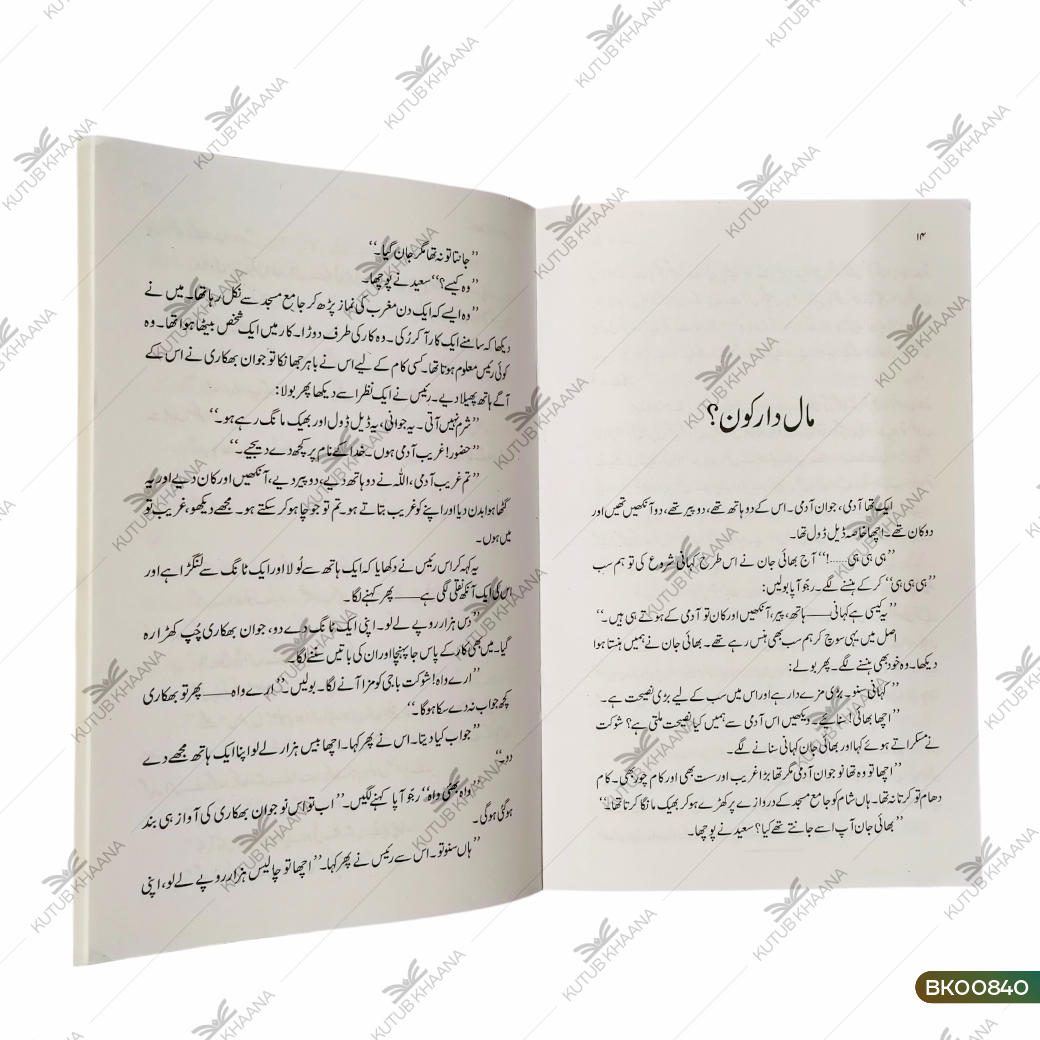 ۱۴
مال دار کون؟
ایک تھا آدمی، جوان آدمی۔ اس کے دو ہاتھ تھے، دو پیر تھے، دو آنکھیں تھیں اور
دو کان تھے۔ اچھا خاصہ ڈیل ڈول تھا۔
”ہی ہی ہی......!“ آج بھائی جان نے اس طرح کہانی شروع کی تو ہم سب
”ہی ہی ہی“ کر کے ہنسنے لگے۔ رجّو آپا بولیں:
”یہ کیسی ہے کہانی—— ہاتھ، پیر، آنکھیں اور کان تو آدمی کے ہوتے ہی ہیں۔“
اصل میں یہی سوچ کر ہم سب بھی ہنس رہے تھے۔ بھائی جان نے ہمیں ہنستا ہوا
دیکھا۔ وہ خود بھی ہنسنے لگے۔ پھر بولے:
”کہانی سنو۔ بڑی مزے دار ہے اور اس میں سب کے لیے بڑی نصیحت ہے۔
”اچھا بھائی! سنائیے۔ دیکھیں اس آدمی سے ہمیں کیا نصیحت ملتی ہے؟ شوکت
نے مسکراتے ہوئے کہا اور بھائی جان کہانی سنانے لگے۔
”اچھا تو وہ تھا نوجوان آدمی مگر تھا بڑا غریب اور سست بھی اور کام چور بھی۔ کام
دھام تو کرتا نہ تھا۔ ہاں شام کو جامع مسجد کے دروازے پر کھڑے ہو کر بھیک مانگا کرتا تھا۔“
”بھائی جان آپ اسے جانتے تھے کیا؟ سعید نے پوچھا۔
”جانتا تو نہ تھا مگر جان گیا۔“
”وہ کیسے؟“ سعید نے پوچھا۔
”وہ ایسے کہ ایک دن مغرب کی نماز پڑھ کر جامع مسجد سے نکل رہا تھا۔ میں نے
دیکھا کہ سامنے ایک کار آ کر رُکی۔ وہ کار کی طرف دوڑا۔ کار میں ایک شخص بیٹھا ہوا تھا۔ وہ
کوئی رئیس معلوم ہوتا تھا۔ کسی کام کے لیے اس نے باہر جھانکا تو جوان بھکاری نے اس کے
آگے ہاتھ پھیلا دیے۔ رئیس نے ایک نظر اسے دیکھا پھر بولا:
”شرم نہیں آتی۔ یہ جوانی، یہ ڈیل ڈول اور بھیک مانگ رہے ہو۔“
”حضور! غریب آدمی ہوں۔ خدا کے نام پر کچھ دے دیجیے۔“
”تم غریب آدمی، اللہ نے دو ہاتھ دیے، دو پیر دیے، آنکھیں اور کان دیے اور یہ
گٹھا ہوا بدن دیا اور اپنے کو غریب بتاتے ہو۔ تم تو جو چاہو کر سکتے ہو۔ مجھے دیکھو، غریب تو
میں ہوں۔
یہ کہہ کر اس رئیس نے دکھایا کہ ایک ہاتھ سے لُولا اور ایک ٹانگ سے لنگڑا ہے اور
اس کی ایک آنکھ نقلی لگی ہے—— پھر کہنے لگا۔
”دس ہزار روپے لے لو۔ اپنی ایک ٹانگ دے دو، جوان بھکاری چُپ کھڑا رہ
گیا۔ میں بھی کار کے پاس جا پہنچا اور ان کی باتیں سُننے لگا۔
”ارے واہ! شوکت باجی کو مزا آنے لگا۔ بولیں۔ ”ارے واہ—— پھر تو بھکاری
کچھ جواب نہ دے سکا ہوگا۔“
”جواب کیا دیتا۔ اس نے پھر کہا۔ اچھا بیس ہزار لے لو اپنا ایک ہاتھ مجھے دے
دو۔“
”واہ بھئی واہ“ رجّو آپا کہنے لگیں۔ ”اب تو اس نو جوان بھکاری کی آواز ہی بند
ہو گئی ہوگی۔
”ہاں سنو تو۔ اس سے رئیس نے پھر کہا۔ ”اچھا تو چالیس ہزار روپے لے لو، اپنی
KUTUB KHAANA
BK00840